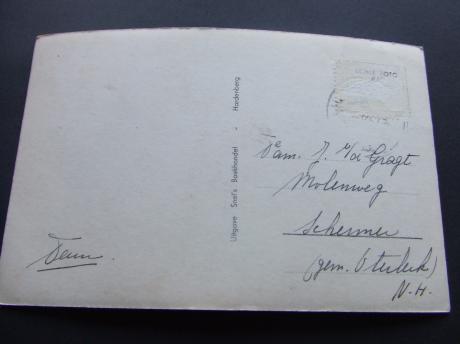 ECHTE FOTO
Uitgave Snel's Boekhandel - Hardenberg
Fam. J. v/d Gragt
Molenweg
Schermer
(gem. Oterleek)
N.H.